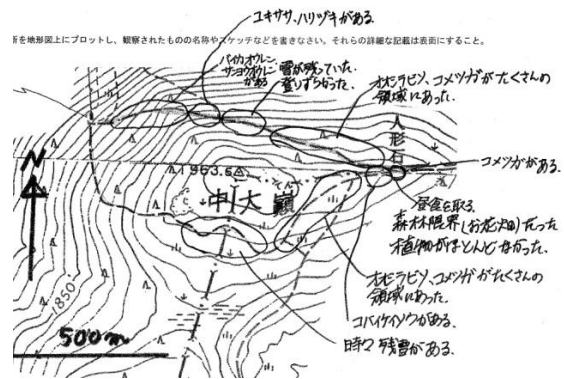 ユキササ、ハリブキがある。
所を地形図上にプロットし、観察されたものの名称やスケッチなどを書きなさい。それらの詳細な記載は表面にすること。
バイカオウレン、
サンヨウオウレン
がある
雪が残っていた。
登りずらかった。
オオシラビソ、コメツガがたくさんの
領域にあった。
人形石
N
1963.6
コメツガがある。
中大巓
昼食を取る
森林限界(お花畑)だった
植物がほとんどなかった。
オオシラビソ、コメツガがたくさんの
領域にあった。
1850
コバイケイソウがある。
500m
時々残雪がある。